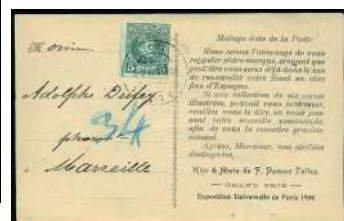 Malaga date de la Poste
Nous avons l'avantage de vous
rappeler notre marque, croyant que
peut être vous serez déjà dans le cas
de renouveler votre Stock en vins
fins d'Espagne.
Si une collection de six cartes
illustrées, pouvait vous intéresser,
veuillez nous le dire, en nous pas-
sant votre nouvelle commande,
afin de vous la remettre gracieu-
sement.
Agréez, Monsieur, nos civilités
distinguées,
Hijo & Nieto de F. Ramos Tellez
GRAND PRIX
Exposition Universelle de Paris 1900
5 5
Adolphe
34
Marseille